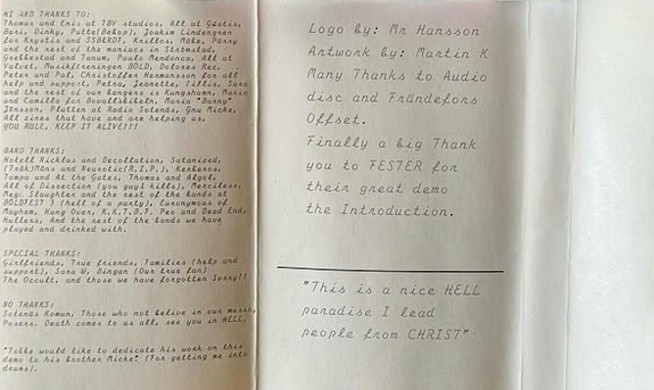 HI AND THANKS TO:
Thomas and Enis at TBV studios, All at Gästis,
Bari, Dinky, Putte(Bebop), Joakim Lindengren
for Krystis and SSBLRDT, Krillos, Make, Parry
and the rest of the maniacs in Strömstad,
Grebbestad and Tanum, Paulo Mendonca, All at
Valvet, Musikföreningen BOLD, Dolores Rec.
Peter and Pat, Christoffer Hermansson for all
help and support, Petra, Jeanette, Lillis, Sara
and the rest of our bangers is Kungshamn, Maria
and Camilla for Bovallsbibeln, Maria "Barny"
Jönsson, Plutten at Radio Sotenäs, Gnu Micke,
All zines that have and are helping us,
YOU RULE, KEEP IT ALIVE!!!
BAND THANKS:
Hotell Nicklas and Decollation, Satanized,
and Neurotic(R.I.P.), Kerberos,
Tompa and At the Gates, Thomas and Algol,
All of Dissection (you guys kills), Merciless,
Megaslaughter and the rest of the bands at
BOLDFEST 3 (hell of a party), Euronymous of
Mayhem, Hung Over, K.K.T.B.T. Peo and Dead End,
Hullers, And the rest of the bands we have
played and drinked with.
SPECIAL THANKS:
Girlfriends, True friends, Families (help and
support), Sara W, Dingan (Our true fan)
The Occult, and those we have forgotten Sorry!!
NO THANKS:
Sotenäs Komun, Those who not belive in our music,
Posers. Death comes to us all, see you in HELL.
"Tobbe would like to dedicate his work on this
demo to his brother Micke". (For getting me into
drums).
Logo by: Mr Hansson
Artwork by: Martin K
Many Thanks to Audio
disc and Fründefors
Offset.
Finally a big Thank
you to FESTER for
their great demo
the Introduction.
"This is a nice HELL
paradise I lead
people from CHRIST"